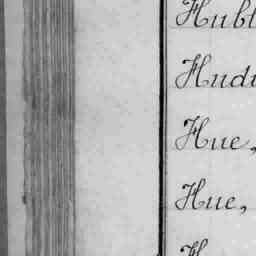 Hubb
Hudu
Hue,
Hue,
H